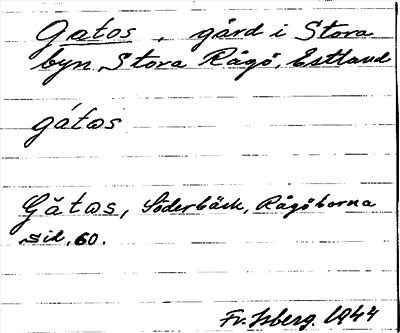 Gatos, gård i Stora
byn, Stora Rågö, Estland
gátɷs
Gătɷs, Söderbäck, Rågöborna
sid. 60.
Fr. Isberg. 1944